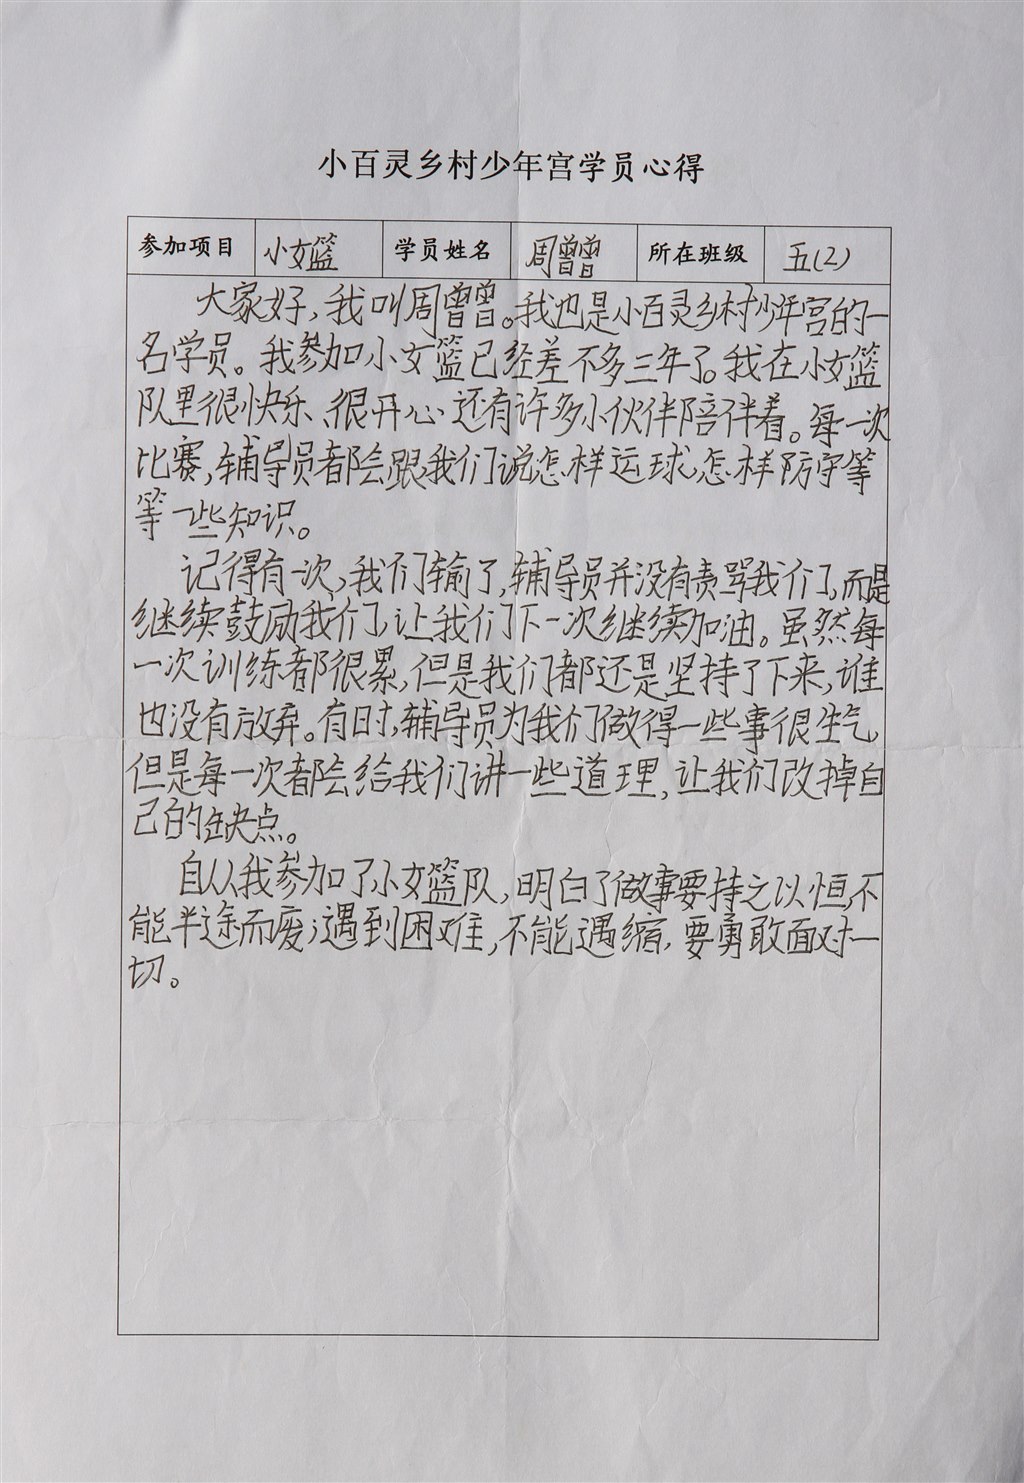 小百灵乡村少年宫学员心得
参加项目 小女篮 学员姓名 周曾曾 所在班级 五(2)
大家好,我叫周曾曾。我也是小百灵乡村少年宫的一
名学员。我参加小女篮已经差不多三年了。我在小女篮
队里很快乐、很开心 还有许多小伙伴陪伴着。每一次
比赛,辅导员都会跟我们说怎样运球,怎样防守等
等一些知识。
记得有一次,我们输了,辅导员并没有责骂我们,而是
继续鼓励我们,让我们下一次继续加油。虽然每
一次训练都很累,但是我们都还是坚持了下来,谁
也没有放弃。有时,辅导员为我们做得一些事很生气,
但是每一次都会给我们讲一些道理,让我们改掉自
己的缺点。
自从我参加了小女篮队,明白了做事要持之以恒,不
能半途而废;遇到困难,不能遇缩,要勇敢面对一
切。